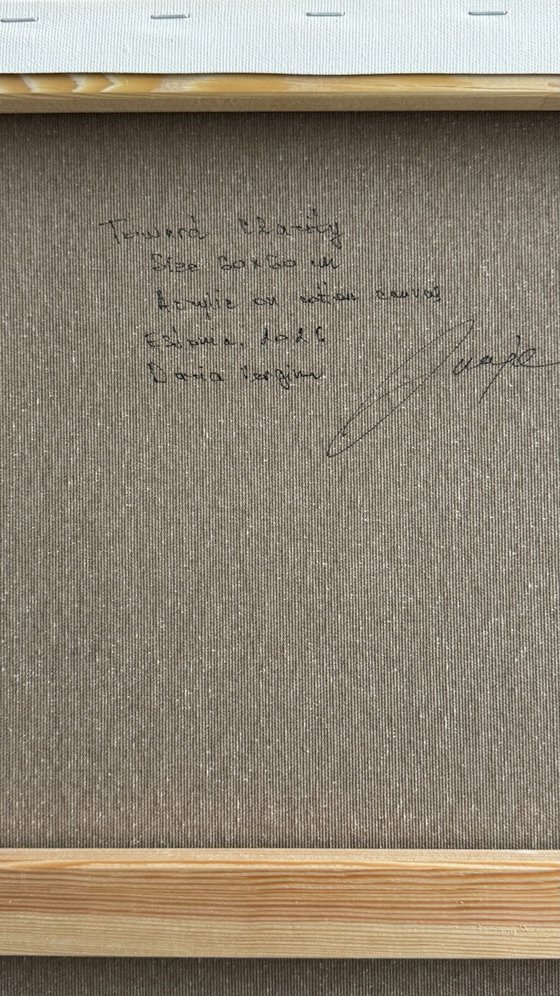 Toward Clarity
Size 60x60 cm
Acrylic on cotton canvas
Estonia, 2026
Daria